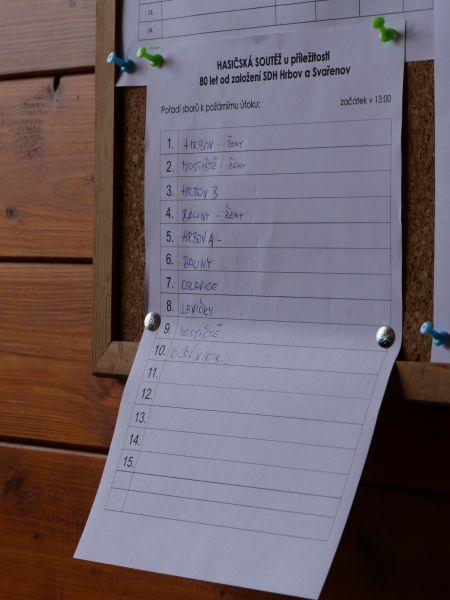 13.
14.
HASIČSKÁ SOUTĚŽ u příležitosti
80 let od založení SDH Hrbov a Svařenov
Pořadí sborů k požárnímu útoku: začátek v 13:00
1. HRBOV - ŽENY
2. MOSTIŠTĚ - ŽENY
3. HRBOV B
4. BALINY - ŽENY
5. HRBOV A -
6. BALINY
7. OSLAVICE
8. LAVIČKY
9. MOSTIŠTĚ
10.
11.
12.
13.
14.
15.